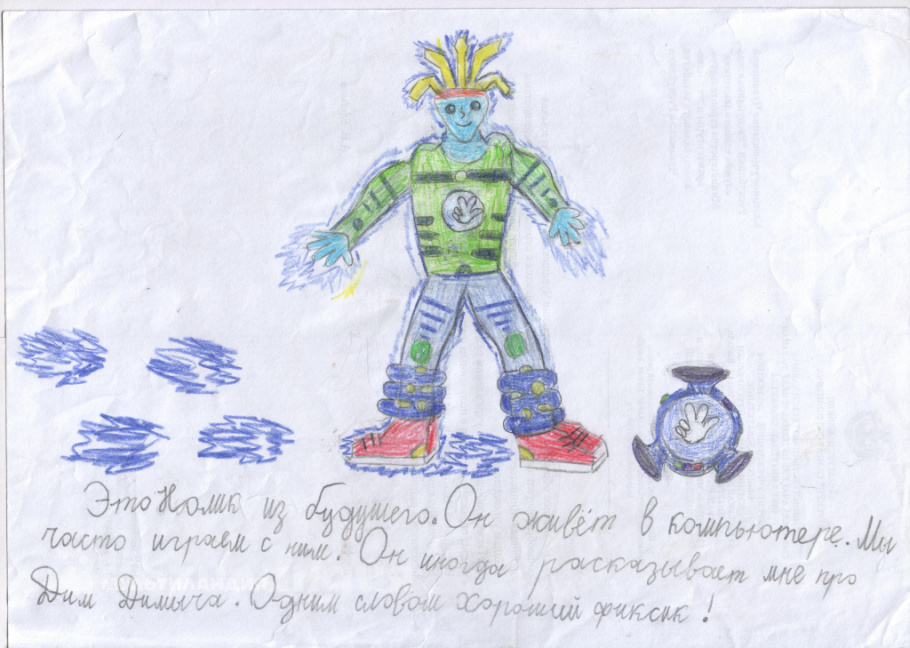 Это Нолик из будущего. Он живёт в компьютере. Мы
часто играем с ним. Он иногда рассказывает мне про
Дим Димыча. Одним словом хороший фиксик!